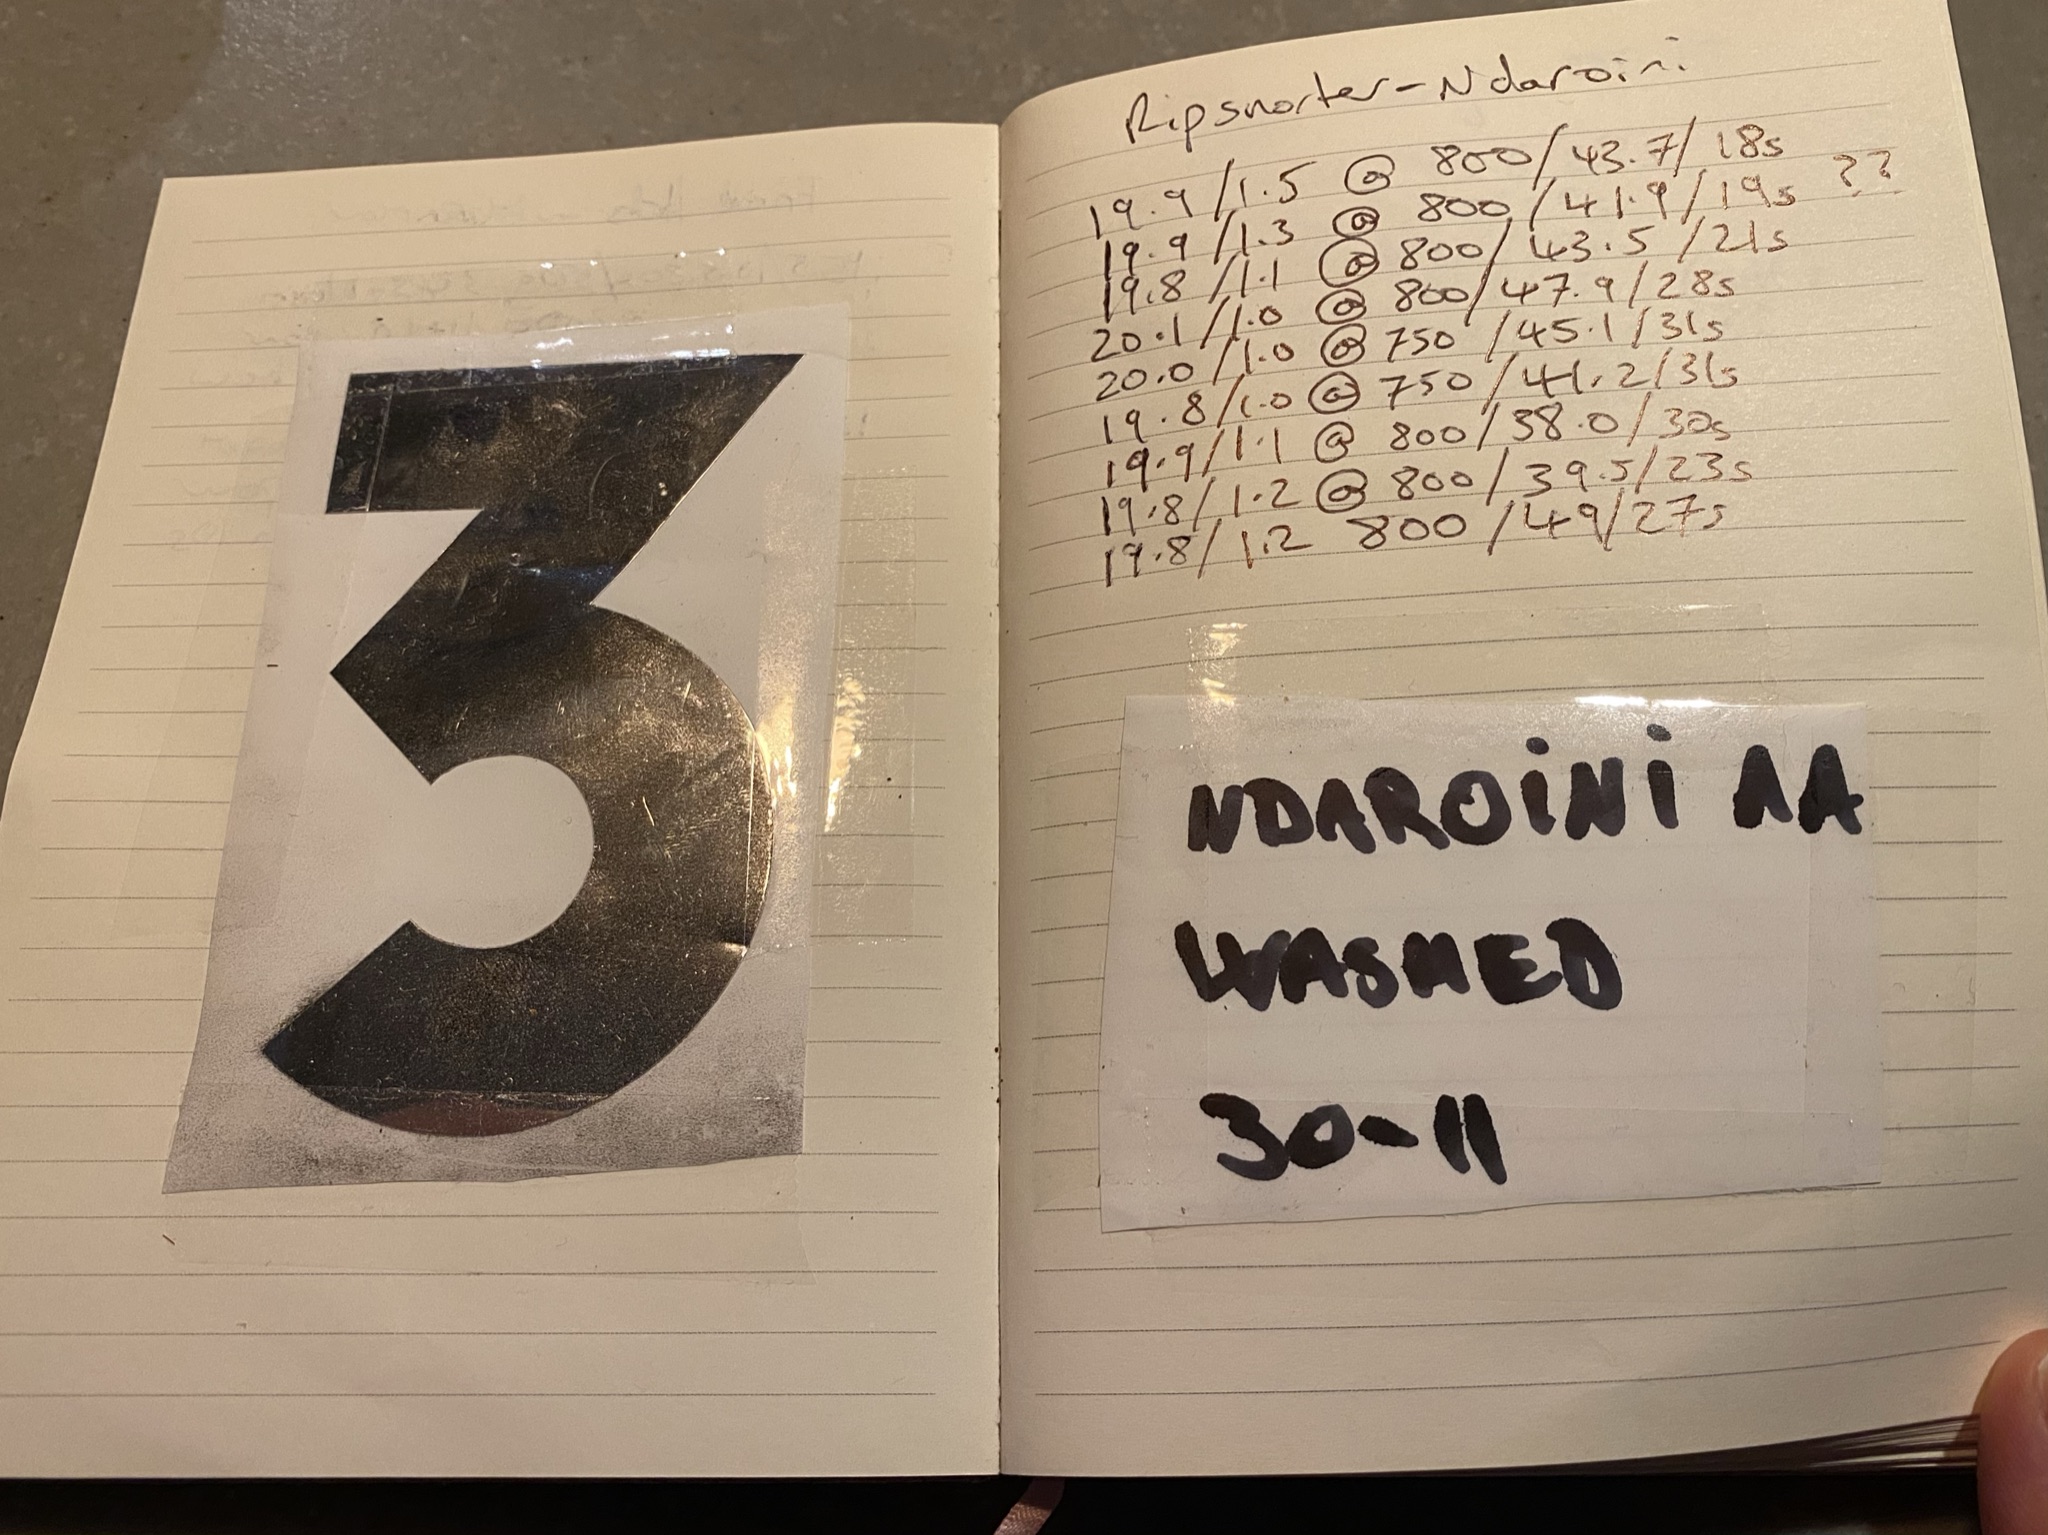 3
Ripsnorter-Ndaroini
19.9/1.5 @ 800/43.7/18s
19.9/1.3 @ 800/41.9/19s ??
19.8/1.1 @ 800/43.5/21s
20.1/1.0 @ 800/47.9/28s
20.0/1.0 @ 750/45.1/31s
19.8/1.0 @ 750/41.2/31s
19.9/1.1 @ 800/38.0/30s
19.8/1.2 @ 800/39.5/23s
19.8/1.2 800/49/27s
NDAROiNi AA
WASHED
30-11